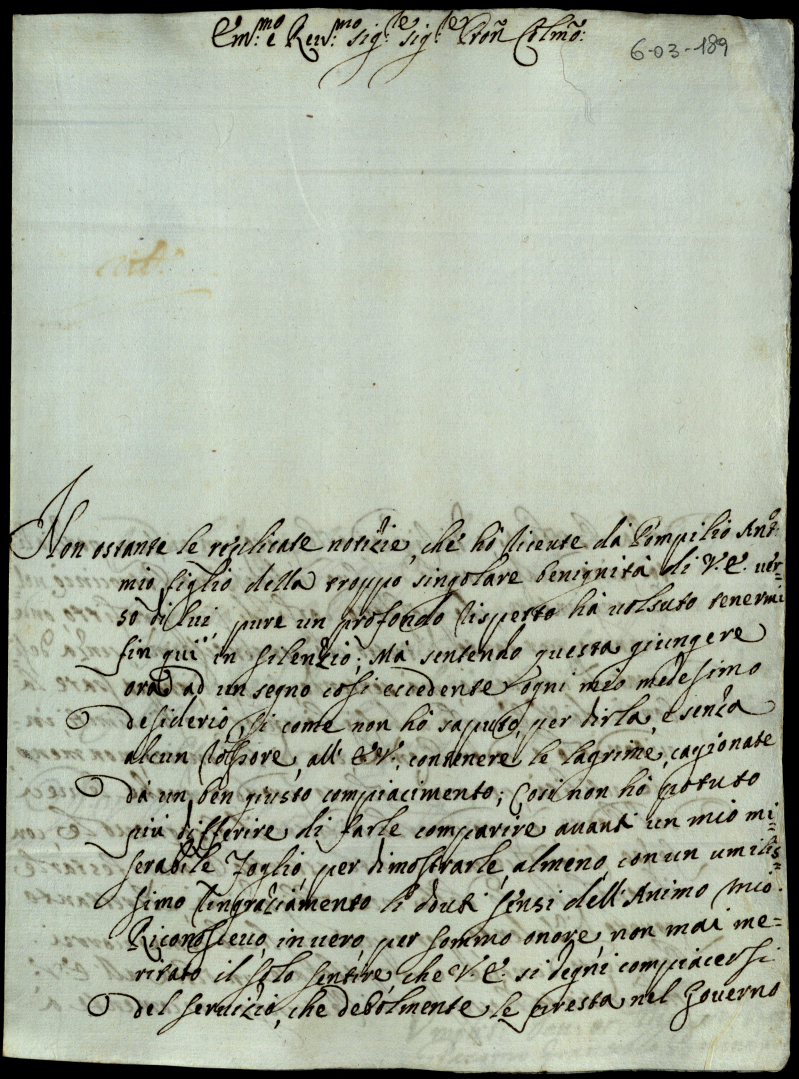 Em.mo e Reu.mo sig.re sig.re Pron Colmo:
6-03-189
Non ostante le replicate notizie, che hò riceute dà Pompilio Anto:
mio figlio della troppo singolare benignità di V.E. uer=
so di lui, pure un profondo rispetto hà uolsuto tenermi
fin quì in silenzio; Mà sentendo questa giungere
ora ad un segno così eccedente ogni mio medesimo
desiderio, sì come non hò saputo, per dirla, e senza
alcun rossore, all' E.V., contenere le lagrime, cagionate
dà un ben giusto compiacimento; Così non hò potuto
più differire di farle comparire auanti un mio mi=
serabile Foglio, per dimostrarle, almeno, con un umilis=
simo ringraziamento li douti sensi dell'Animo mio.
Riconosceuo, in uero, per sommo onore, non mai me=
ritato il solo sentire, che V.E. si degni compiacersi
del seruizio, che debolmente le presta nel Gouerno